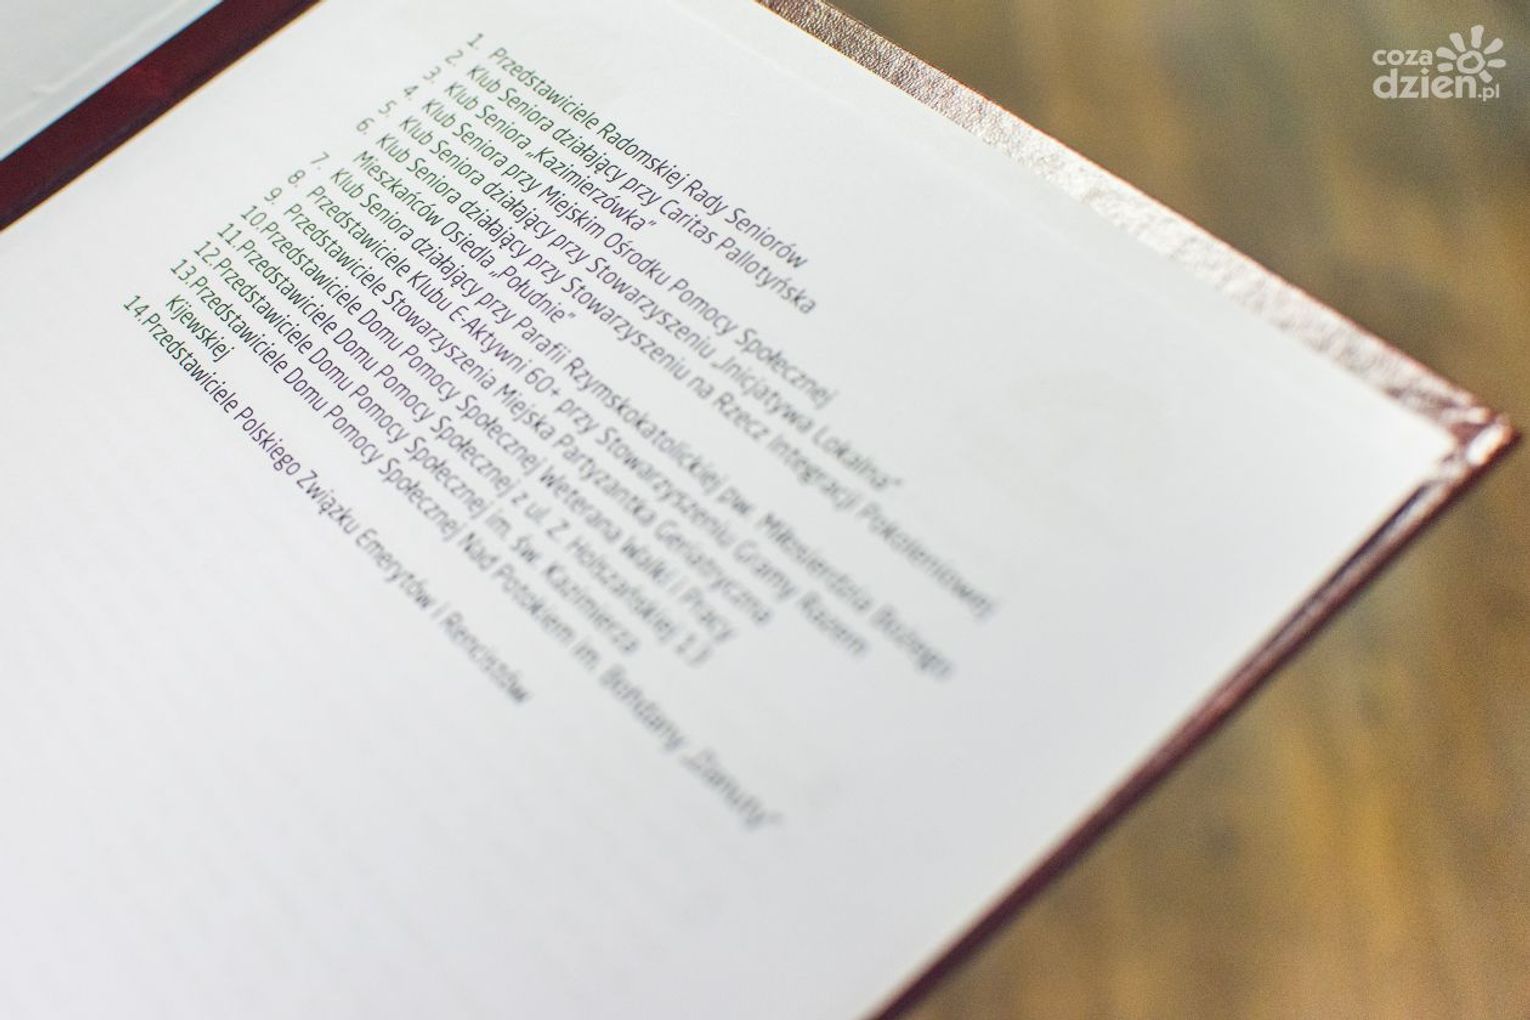 1. Przedstawiciele Radomskiej Rady Seniorów
2. Klub Seniora działający przy Caritas Pallotyńska
3. Klub Seniora „Kazimierzówka”
4. Klub Seniora przy Miejskim Ośrodku Pomocy Społecznej
5. Klub Seniora działający przy Stowarzyszeniu „Inicjatywa Lokalna”
6. Klub Seniora działający przy Stowarzyszeniu na Rzecz Integracji Pokoleniowej
Mieszkańców Osiedla „Południe”
7. Klub Seniora działający przy Parafii Rzymskokatolickiej pw. Miłosierdzia Bożego
8. Przedstawiciele Klubu E-Aktywni 60+ przy Stowarzyszeniu Gramy Razem
9. Przedstawiciele Stowarzyszenia Miejska Partyzantka Geriatryczna
10.Przedstawiciele Domu Pomocy Społecznej Weterana Walki i Pracy
11.Przedstawiciele Domu Pomocy Społecznej z ul. Z. Holszańskiej 13
12.Przedstawiciele Domu Pomocy Społecznej im. Św. Kazimierza
13.Przedstawiciele Domu Pomocy Społecznej Nad Potokiem im. Bohdany „Danuty”
Kijewskiej
14.Przedstawiciele Polskiego Związku Emerytów i Rencistów
coza
dzien.pl